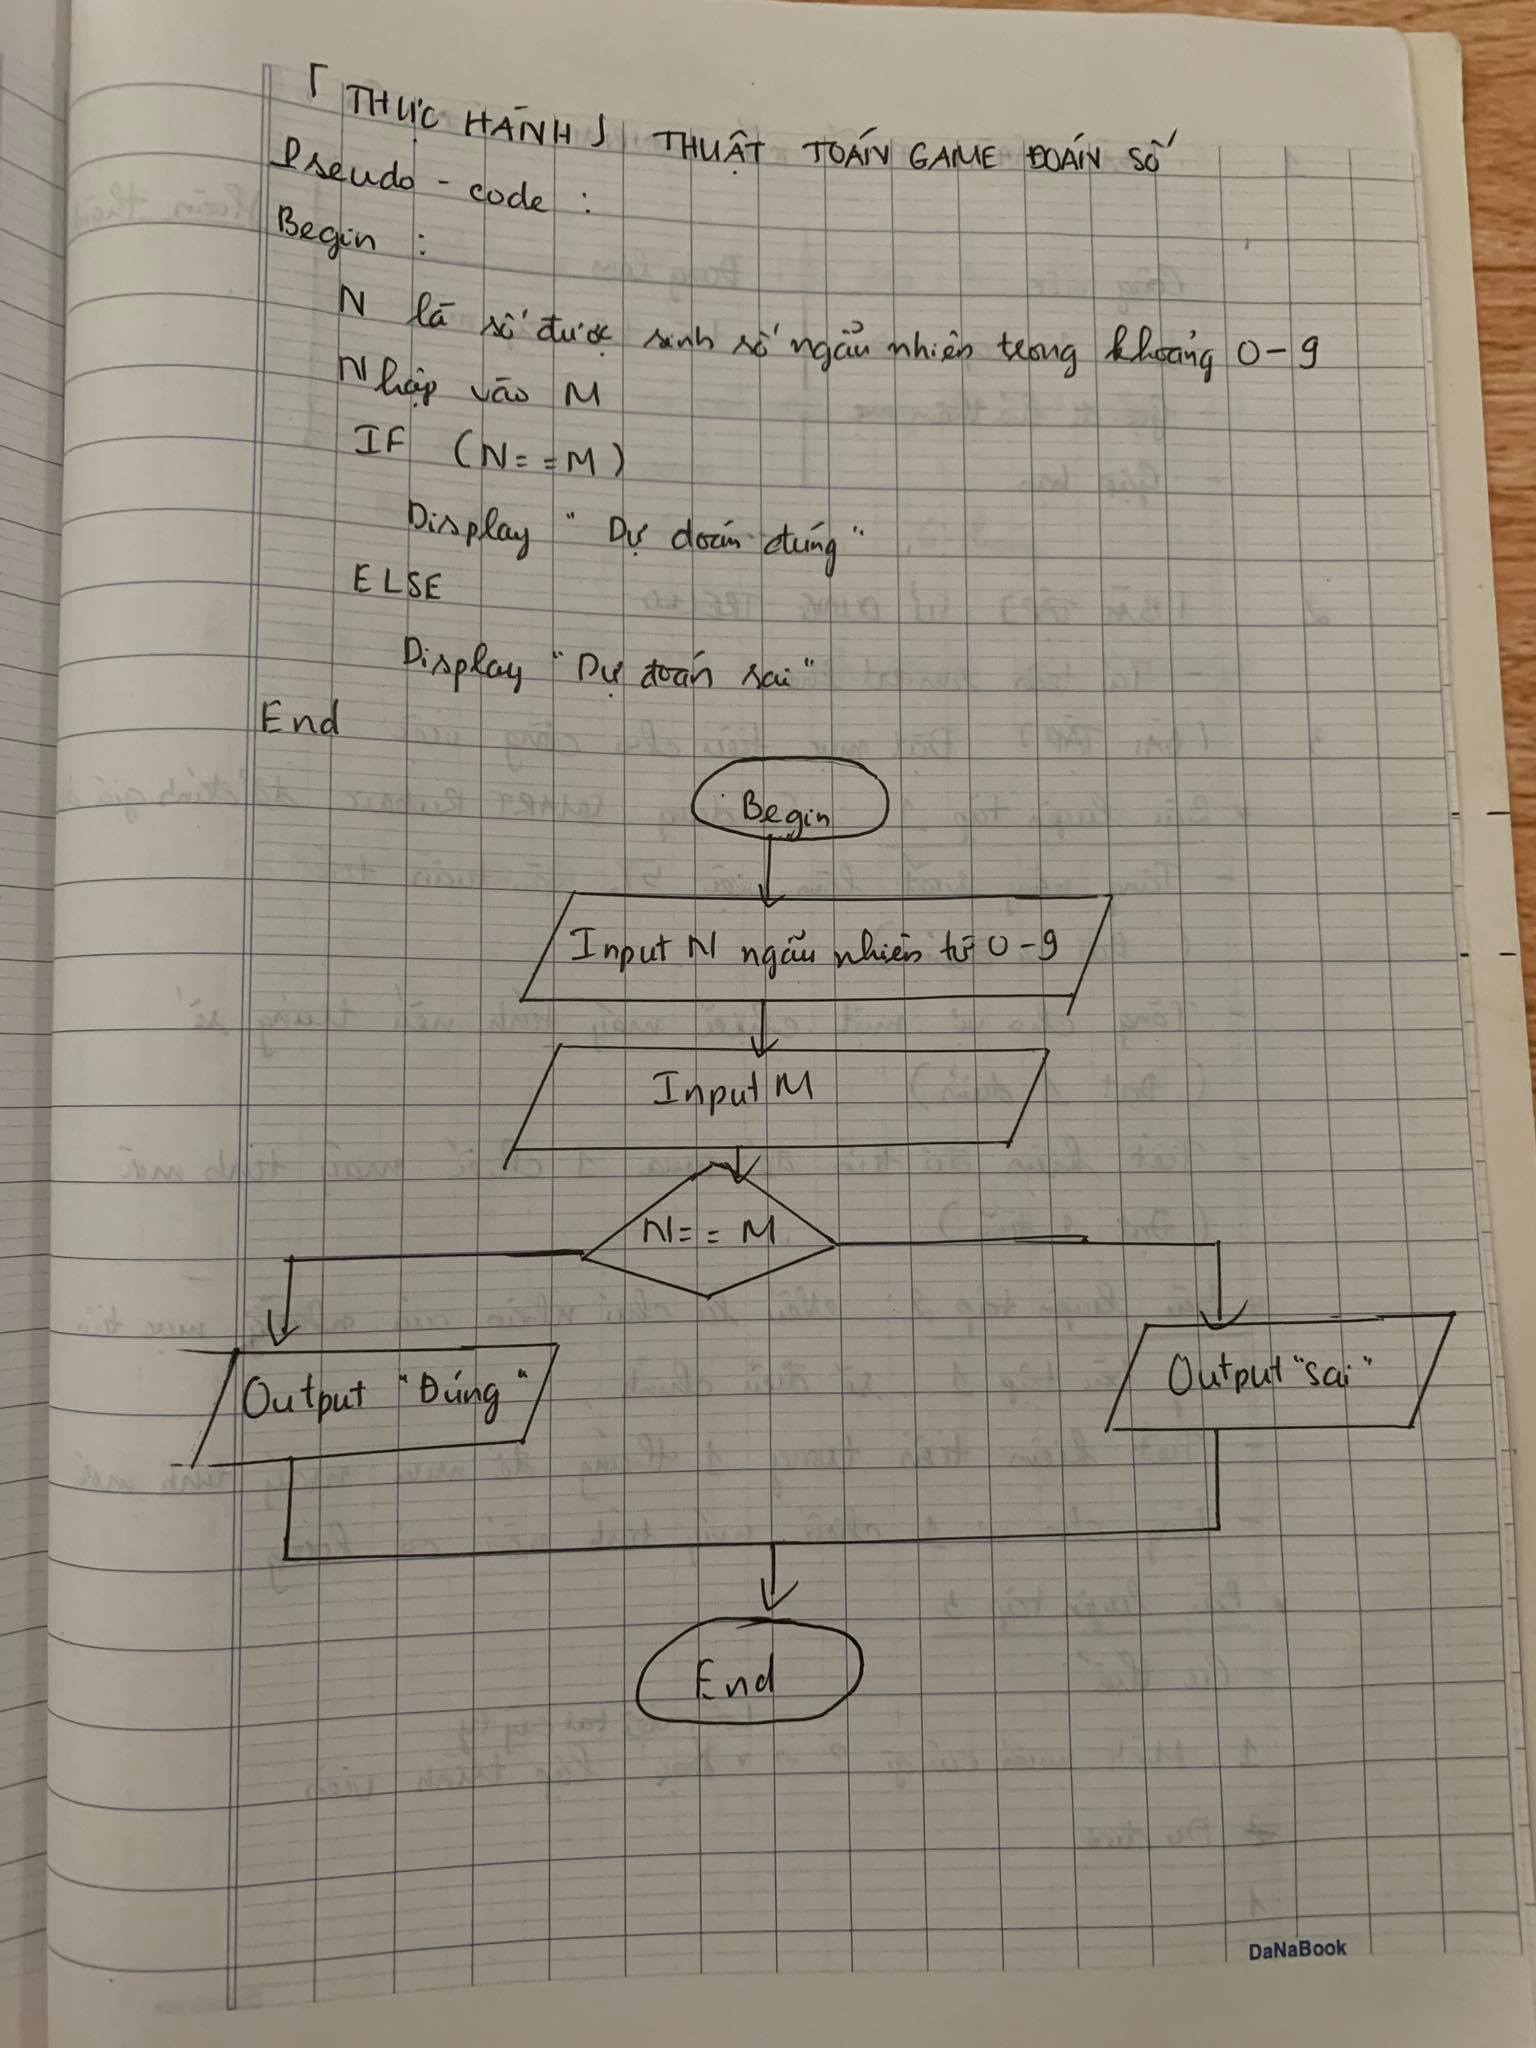 [THỰC HÀNH] THUẬT TOÁN GAME ĐOÁN SỐ
Pseudo-code :
Begin :
N là số được sinh số ngẫu nhiên trong khoảng 0-9
Nhập vào M
IF (N==M)
Display "Dự đoán đúng"
ELSE
Display "Dự đoán sai"
End
Begin
Input N ngẫu nhiên từ 0-9
Input M
N==M
Output "Đúng"
Output "sai"
End
DaNaBook